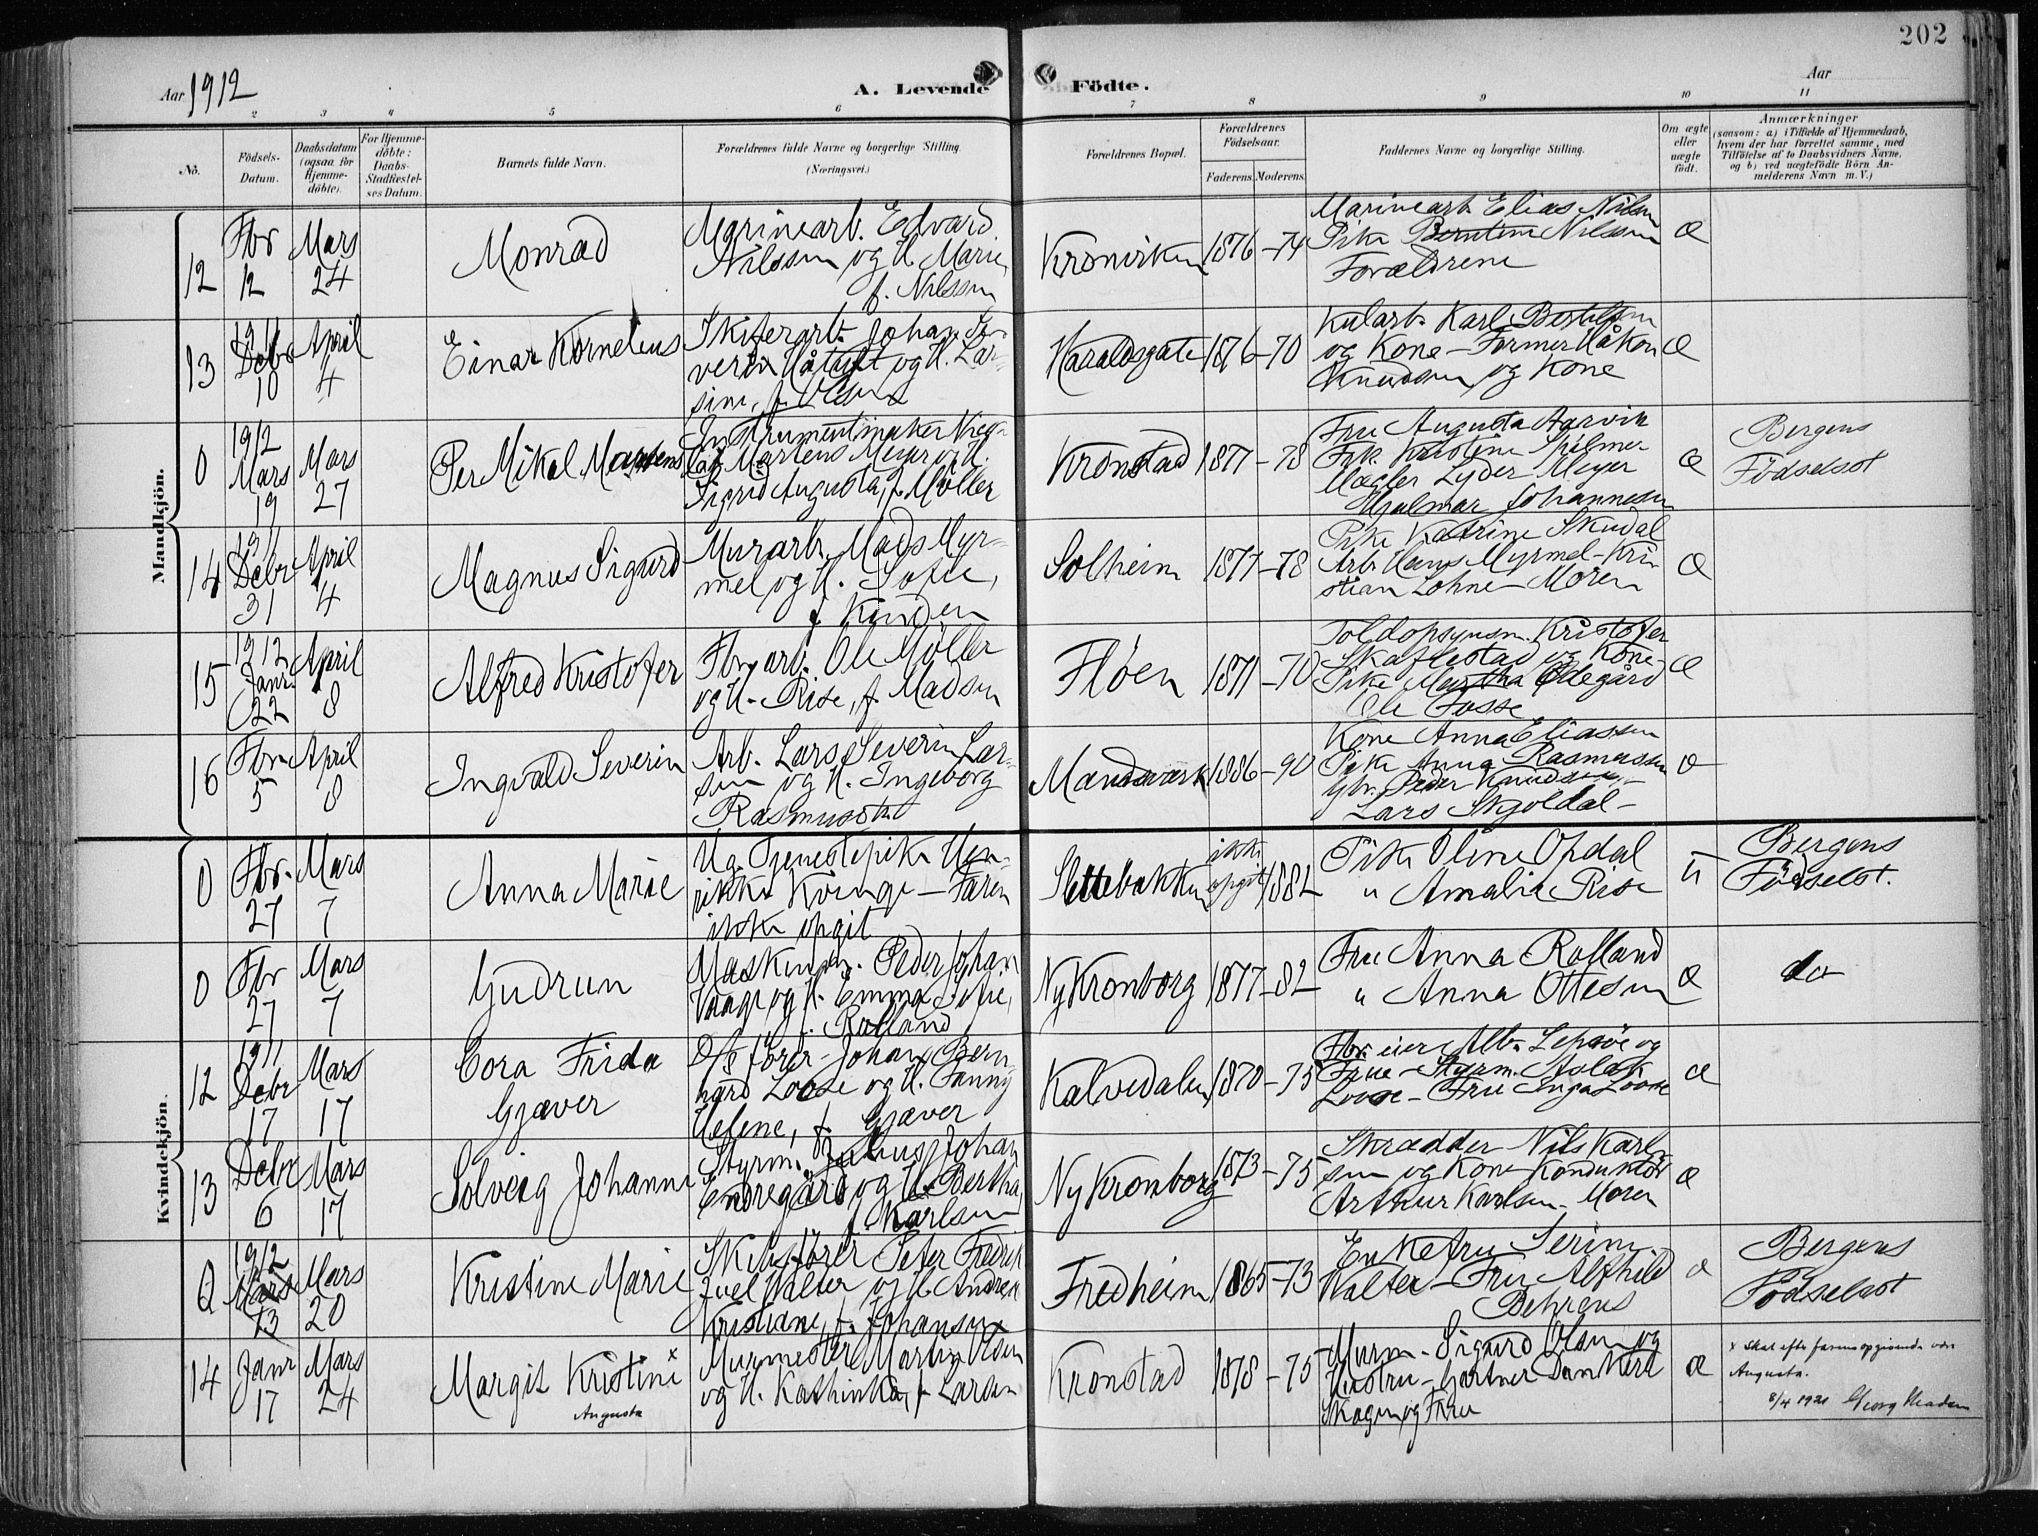 202
Aar 1912
A. Levende Födte.
Aar
2 3 4 5 6 7 8 9 10 11
No.
Födsels-
Datum.
Daabsdatum
(ogsaa for
Hjemme-
döbte).
For Hjemme-
döbte:
Daabs-
Stadfæstel-
ses Datum.
Barnets fulde Navn.
Forældrenes fulde Navne og borgerlige Stilling.
(Næringsvei.)
Forældrenes Bopæl.
Forældrenes
Födselsaar.
Faderens. Moderens.
Faddernes Navne og borgerlige Stilling.
Om ægte
eller
uægte
födt.
Anmærkninger
(saasom: a) i Tilfælde af Hjemmedaab,
hvem der har forrettet samme, med
Tilföielse af to Daabsvidners Navne,
og b) ved uægtefödte Börn An-
melderens Navn m. V.)
Mandkjön.
12
Fbr
12
Mars
24
Monrad
Marinearb. Edvard
Nilssen og H. Marie,
f. Nilssen
Kronviken
1876 - 74
Marinearb Elias Nilsen
Pike Berntine Nilssen
Forældrene
Æ
13
1911
Debr
10
April
4
Einar Kornelius
Skiferarb. Johan Se-
verin Håtuft og H. Lar-
sine, f. Olsen
Haraldsgate
1876 - 70
Kularb. Karl Bertilsen
og Kone - Former Håkon
Knudsen og Kone
Æ
0
1912
Mars
19
Mars
27
Per Mikal Martens
Instrumentmaker Nico-
lay Martens Meyer og H.
Sigrid Augusta, f. Møller
Kronstad
1877 - 78
Fru Augusta Aarvik
Frk. Kristine
Mægler Lyder Meyer
Hjalmar Johannesen
Æ
Bergens
Fødselsst
14
1911
Debr
31
April
4
Magnus Sigurd
Murarb. Mads Myr-
mel og H. Sofie,
f. Kinden
Solheim
1877 - 78
Pike Katrine Skudal
Arb Hans Myrmel - Kri-
stian Lohne - Moren
Æ
15
1912
Janr.
22
April
8
Alfred Kristofer
Fbrarb. Ole Møller
og H. Rise, f. Madsen
Fløen
1871 - 70
Toldopsynsm. Kristofer
Skaflestad og Kone
Pike Martha Ødegård
Ole Fosse
Æ
16
Fbr
5
April
8
Ingvald Severin
Arb. Lars Severin Lar-
sen og H. Ingeborg
Rasmussen
Mandsverk
1886 - 90
Kone Anna Eliassen
Pike Anna Rasmussen
Gbr. Peder Knudsen -
Lars Skjoldal -
Æ
Kvindekjön.
0
Fbr.
27
Mars
7
Anna Marie
Ug. Tjenestepike Hen-
rikke Kvinge - Faren
ikke opgit
Slettebakken
ikke
opgit 1882
Pike Oline Opdal
" Amalie Rise
U
Bergens
Fødselsst.
0
Fbr
27
Mars
7
Gudrun
Maskin. Peder Johan
Vaage og H. Emma Sofie,
f. Rolland
Ny Kronborg
1877 - 82
Fru Anna Rolland
" Anna Ottesen
Æ
do
12
1911
Debr
17
Mars
17
Cora Frida
Gjæver
D/S fører Johan Bern-
hard Loose og H. Fanny
Helene, f. Gjæver
Kalvedalen
1870 - 75
Fbr. eier Alb. Lepsøe og
Frue - Styrm. Aslak
Loose - Fru Inga Loose
Æ
13
Debr
6
Mars
17
Solveig Johanne
Styrm. Julius Johan
Endregård og H. Bertha,
f. Karlsen
Ny Kronborg
1873 - 75
Skrædder Nils Karl-
sen og Kone - Konduktør
Arthur Karlsen - Moren
Æ
0
1912
Mars
13
Mars
20
Kristine Marie
Skibsfører Peter Fredrik
Juel Walter og H. Andrea
Kristiane, f. Johansen
Fredheim
1865 - 73
Enkefru Serine
Walter - Fru Alfhild
Behrens
Æ
Bergens
Fødselsst
14
Janr
17
Mars
24
Margit Kristine x
Augusta
Murmester Martin Olsen
og H. Kathinka, f. Larsen
Kronstad
1878 - 75
Murm. Sigurd Olsen og
Hustru - Gartner Dankert
Skagen og Frue
Æ
x Skal efter farens opgivende være
Augusta.
8/4 1921 Georg